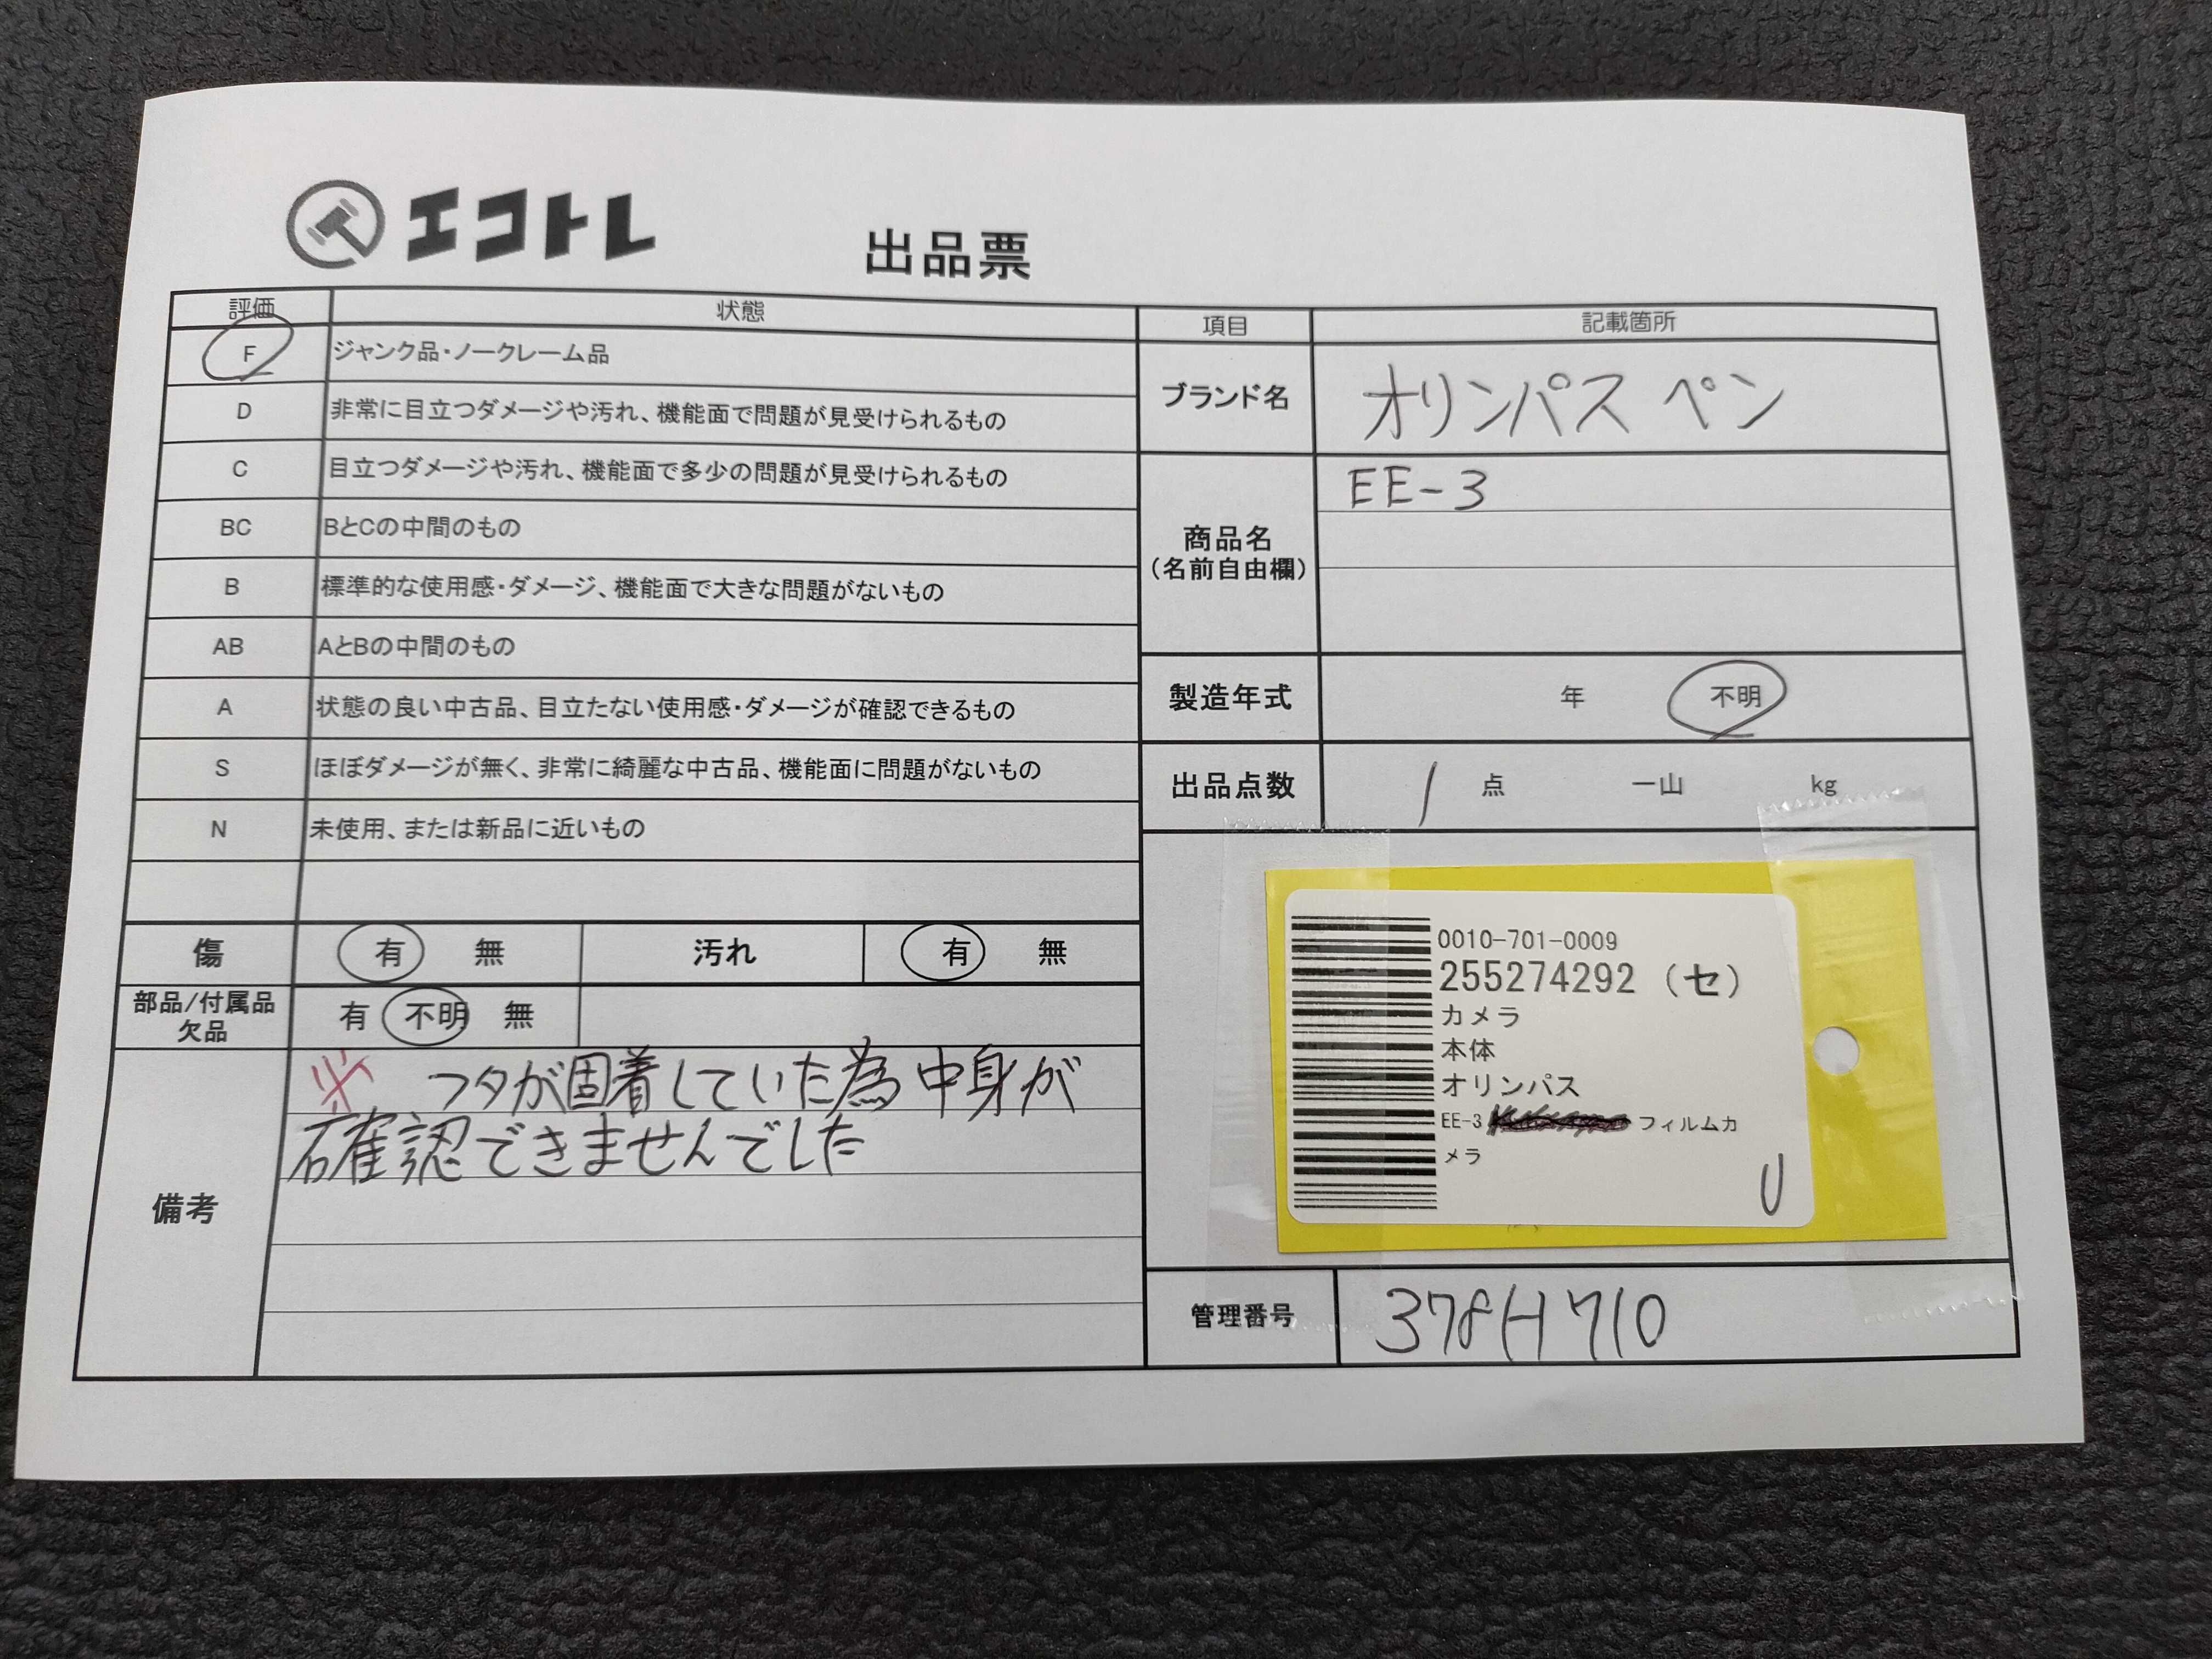 エコトレ
出品票
評価 状態
F ジャンク品・ノークレーム品
D 非常に目立つダメージや汚れ、機能面で問題が見受けられるもの
C 目立つダメージや汚れ、機能面で多少の問題が見受けられるもの
BC BとCの中間のもの
B 標準的な使用感・ダメージ、機能面で大きな問題がないもの
AB AとBの中間のもの
A 状態の良い中古品、目立たない使用感・ダメージが確認できるもの
S ほぼダメージが無く、非常に綺麗な中古品、機能面に問題がないもの
N 未使用、または新品に近いもの
傷 有 無 汚れ 有 無
部品/付属品
欠品
有 不明 無
備考
※ フタが固着していた為中身が
確認できませんでした
項目 記載箇所
ブランド名 オリンパス ペン
商品名
(名前自由欄)
EE-3
製造年式 年 不明
出品点数 1 点 一山 kg
0010-701-0009
255274292 (セ)
カメラ
本体
オリンパス
EE-3 フィルムカ
メラ
U
管理番号 378H710